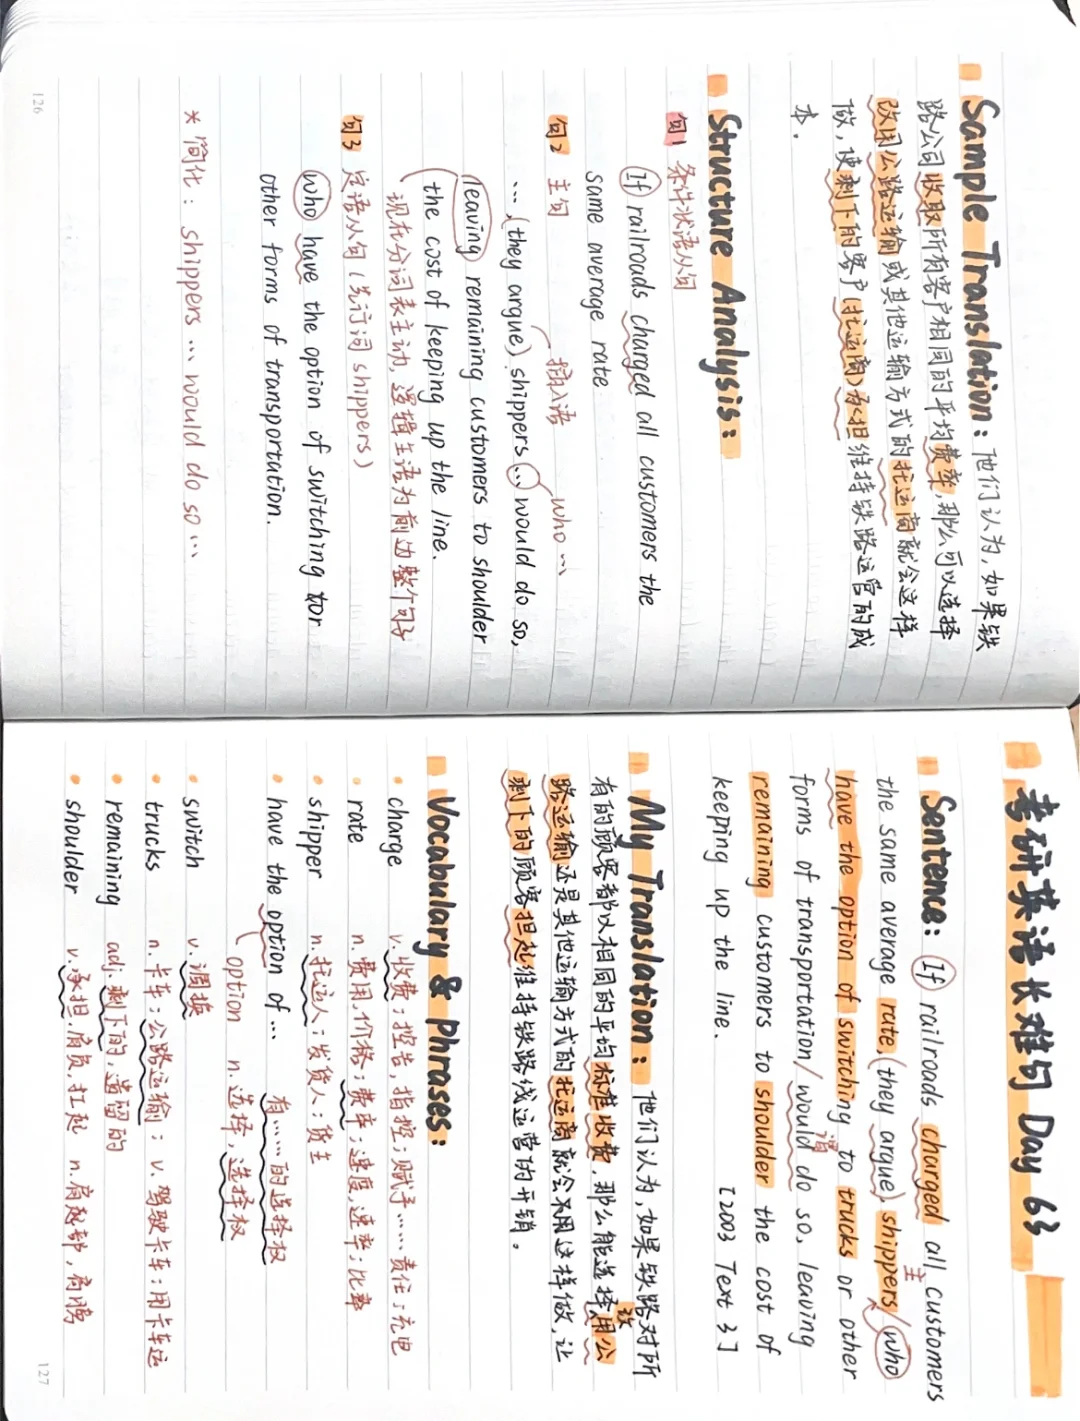 考研英语长难句 Day 63
Sentence: If railroads charged all customers
the same average rate, (they argue), shippers/who
主
have the option of switching to trucks or other
谓
forms of transportation/would do so, leaving
remaining customers to shoulder the cost of
keeping up the line. [2003 Text 3]
My Translation: 他们认为,如果铁路对所
有的顾客都以相同的平均标准收费,那么能选择用公
改
路运输还是其他运输方式的托运商就会不用这样做,让
剩下的顾客担起维持铁路线运营的开销。
Vocabulary & Phrases:
• charge v.收费;控告,指控;赋予……责任;充电
• rate n.费用,价格;费率;速度,速率;比率
• shipper n.托运人;发货人;货主
• have the option of… 有……的选择权
option n.选择,选择权
• switch v.调换
• trucks n.卡车;公路运输;v.驾驶卡车;用卡车运
• remaining adj.剩下的,遗留的
• shoulder v.承担.肩负,扛起 n.肩
127
Sample Translation: 他们认为,如果铁
路公司收取所有客户相同的平均费率,那么可以选择
改用公路运输或其他运输方式的托运商就会这样
做,使剩下的客户(托运商)承担维持铁路运营的成
本.
Structure Analysis:
句1 条件状语从句
If railroads charged all customers the
same average rate
句2 主句 插入语 who…
…,(they argue) shippers … would do so,
leaving remaining customers to shoulder
the cost of keeping up the line.
现在分词表主动,逻辑主语为前边整个句子
句3 定语从句(先行词 shippers)
who have the option of switching tor
other forms of transportation.
* 简化: shippers … would do so …
126